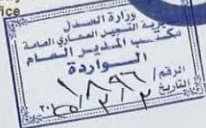 ffice
وزارة العدل
مديرية التسجيل العقاري العامة
مكتب المدير العام
الواردة
الرقم / ٨٩٦
التاريخ